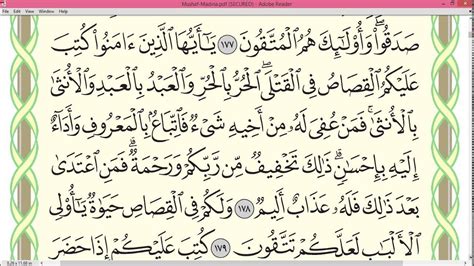 Mushaf-Madina.pdf (SECURED) - Adobe Reader
صَدَقُوا۟ۖ وَأُو۟لَـٰٓئِكَ هُمُ ٱلْمُتَّقُونَ ١٧٧ يَـٰٓأَيُّهَا ٱلَّذِينَ ءَامَنُوا۟ كُتِبَ
عَلَيْكُمُ ٱلْقِصَاصُ فِى ٱلْقَتْلَىۖ ٱلْحُرُّ بِٱلْحُرِّ وَٱلْعَبْدُ بِٱلْعَبْدِ وَٱلْأُنثَىٰ
بِٱلْأُنثَىٰۚ فَمَنْ عُفِىَ لَهُۥ مِنْ أَخِيهِ شَىْءٌ فَٱتِّبَاعٌۢ بِٱلْمَعْرُوفِ وَأَدَآءٌ
إِلَيْهِ بِإِحْسَـٰنٍۗ ذَٰلِكَ تَخْفِيفٌ مِّن رَّبِّكُمْ وَرَحْمَةٌۗ فَمَنِ ٱعْتَدَىٰ
بَعْدَ ذَٰلِكَ فَلَهُۥ عَذَابٌ أَلِيمٌ ١٧٨ وَلَكُمْ فِى ٱلْقِصَاصِ حَيَوٰةٌ يَـٰٓأُو۟لِى
ٱلْأَلْبَـٰبِ لَعَلَّكُمْ تَتَّقُونَ ١٧٩ كُتِبَ عَلَيْكُمْ إِذَا حَضَرَ